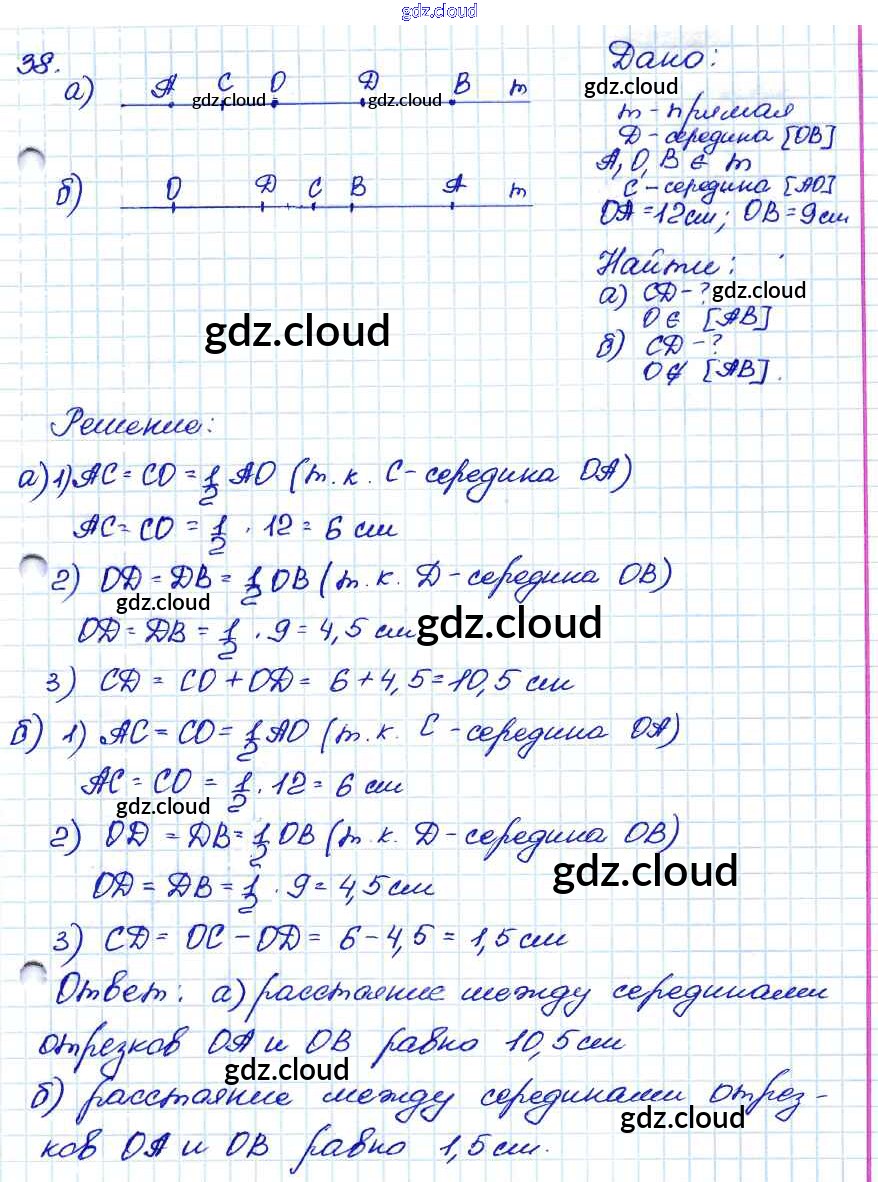 gdz.cloud
38.
а) A C O D B m
gdz.cloud gdz.cloud
б) O D C B A m
Дано:
gdz.cloud
m - прямая
D - середина [OB]
A, O, B ∈ m
C - середина [AO]
OA = 12 см; OB = 9 см
Найти:
а) CD - ? gdz.cloud
O ∈ [AB]
б) CD - ?
O ∉ [AB].
gdz.cloud
Решение:
а) 1) AC = CO = 1/2 AO (т. к. C - середина OA)
AC = CO = 1/2 · 12 = 6 см
2) OD = DB = 1/2 OB (т. к. D - середина OB)
gdz.cloud
OD = DB = 1/2 · 9 = 4,5 см gdz.cloud
3) CD = CO + OD = 6 + 4,5 = 10,5 см
б) 1) AC = CO = 1/2 AO (т. к. C - середина OA)
AC = CO = 1/2 · 12 = 6 см
gdz.cloud
2) OD = DB = 1/2 OB (т. к. D - середина OB)
gdz.cloud
OD = DB = 1/2 · 9 = 4,5 см
3) CD = OC - OD = 6 - 4,5 = 1,5 см
Ответ: а) расстояние между серединами
отрезков OA и OB равно 10,5 см
gdz.cloud
б) расстояние между серединами отрез-
gdz.cloud
ков OA и OB равно 1,5 см.